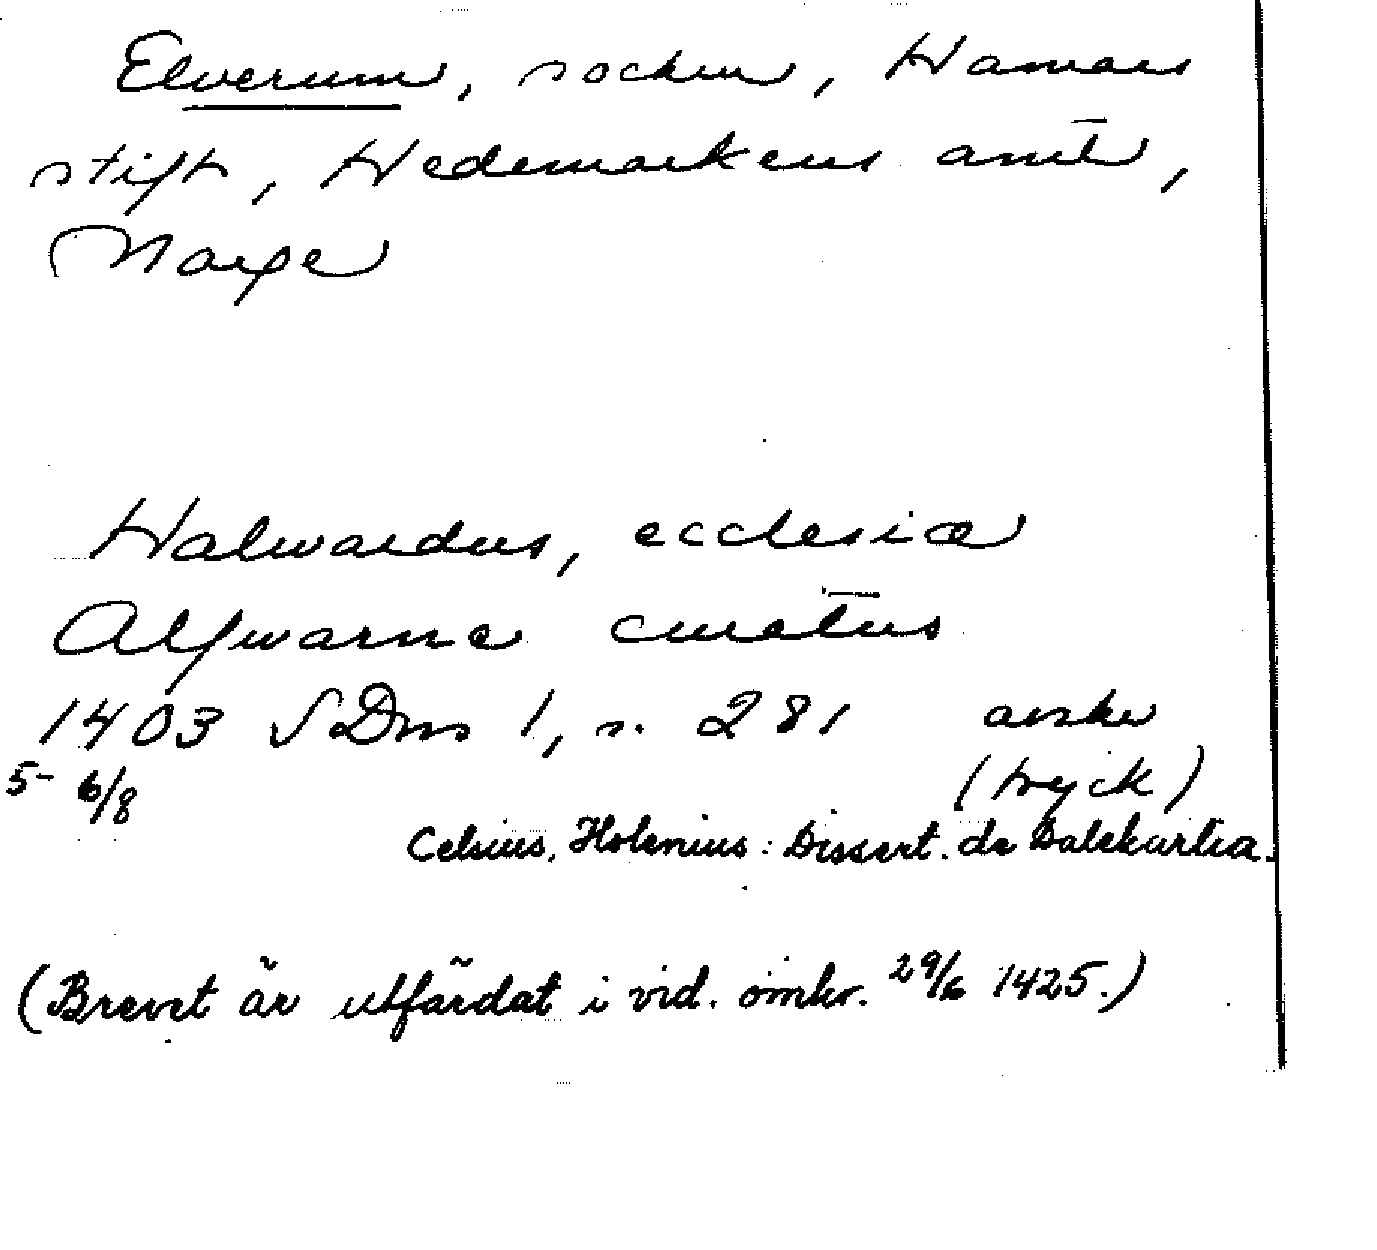 Elverum, socken, Hamars
stift, Hedemarkens amt,
Norge
Halwardus, ecclesiæ
Alfwarne curatus
1403 SDns 1, s. 281 avskr
5-6/8 (tryck)
Celsius, Holenius: Dissert. de Dalekarlia.
(Brevet är utfärdat i vid. omkr. 29/6 1425.)